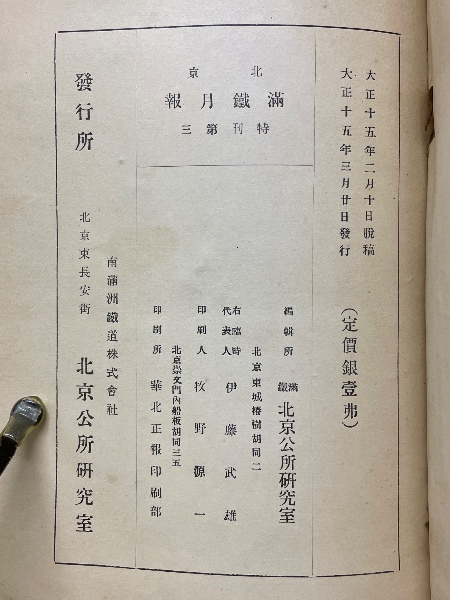 大正十五年二月十日脱稿
大正十五年三月廿日發行
(定價銀壹弗)
北京
滿鐵月報
特刊第三
編輯所 滿鐵 北京公所研究室
北京東城椿樹胡同二
右臨時代表人 伊藤武雄
印刷人 牧野源一
北京崇文門內船板胡同三五
印刷所 華北正報印刷部
南滿洲鐵道株式會社
發行所 北京東長安街 北京公所研究室